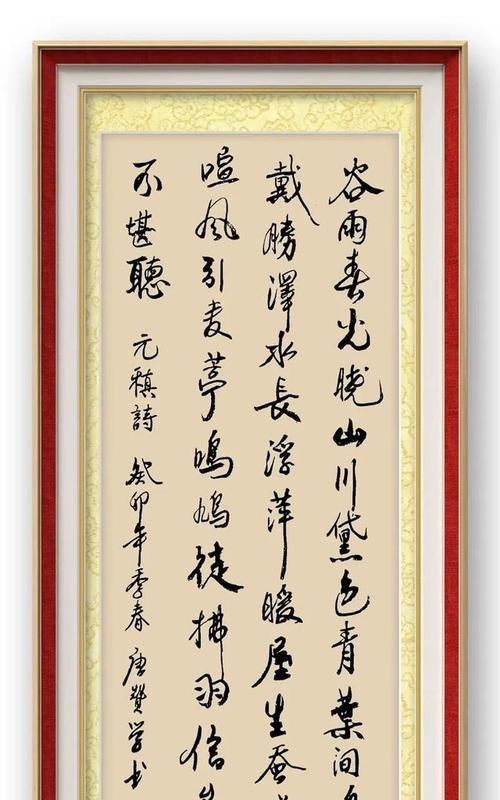 谷雨春光曉山川黛色青葉间
戴勝澤水長浮萍暖屋生蚕
喧风引麦葶鳴鳩徒拂羽信
不堪聽 元稹詩 癸卯年季春 唐赞学书